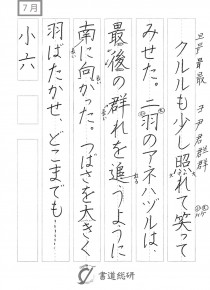 7月
クルルも少し照れて笑って
みせた。二羽のアネハヅルは、
最後の群れを追うように
南に向かった。つばさを大きく
羽ばたかせ、どこまでも……
小六
書道総研